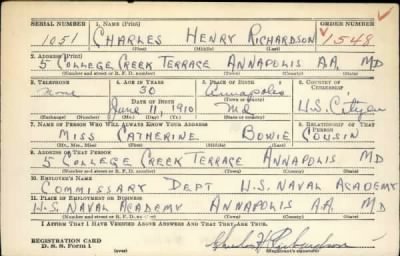 SERIAL NUMBER 1. NAME (Print) ORDER NUMBER
1051 CHARLES HENRY RICHARDSON 1548
(First) (Middle) (Last)
2. ADDRESS (Print)
5 COLLEGE CREEK TERRACE ANNAPOLIS A.A. MD
(Number and street or R. F. D. number) (Town) (County) (State)
3. TELEPHONE 4. AGE IN YEARS 5. PLACE OF BIRTH 6. COUNTRY OF CITIZENSHIP
None 30 Annapolis
DATE OF BIRTH
June 11, 1910 Md U.S. Citizen
(Exchange) (Number) (Mo.) (Day) (Yr.) (State or country)
7. NAME OF PERSON WHO WILL ALWAYS KNOW YOUR ADDRESS 8. RELATIONSHIP OF THAT PERSON
MISS CATHERINE BOWIE COUSIN
(Mr., Mrs., Miss) (First) (Middle) (Last)
9. ADDRESS OF THAT PERSON
5 COLLEGE CREEK TERRACE ANNAPOLIS MD
(Number and street or R. F. D. number) (Town) (County) (State)
10. EMPLOYER'S NAME
COMMISSARY DEPT U.S. NAVAL ACADEMY
11. PLACE OF EMPLOYMENT OR BUSINESS
U.S. NAVAL ACADEMY ANNAPOLIS A.A. MD
(Number and street or R. F. D. number) (Town) (County) (State)
I AFFIRM THAT I HAVE VERIFIED ABOVE ANSWERS AND THAT THEY ARE TRUE.
REGISTRATION CARD
D. S. S. Form 1 (over) Charles H. Richardson
(Registrant's signature)